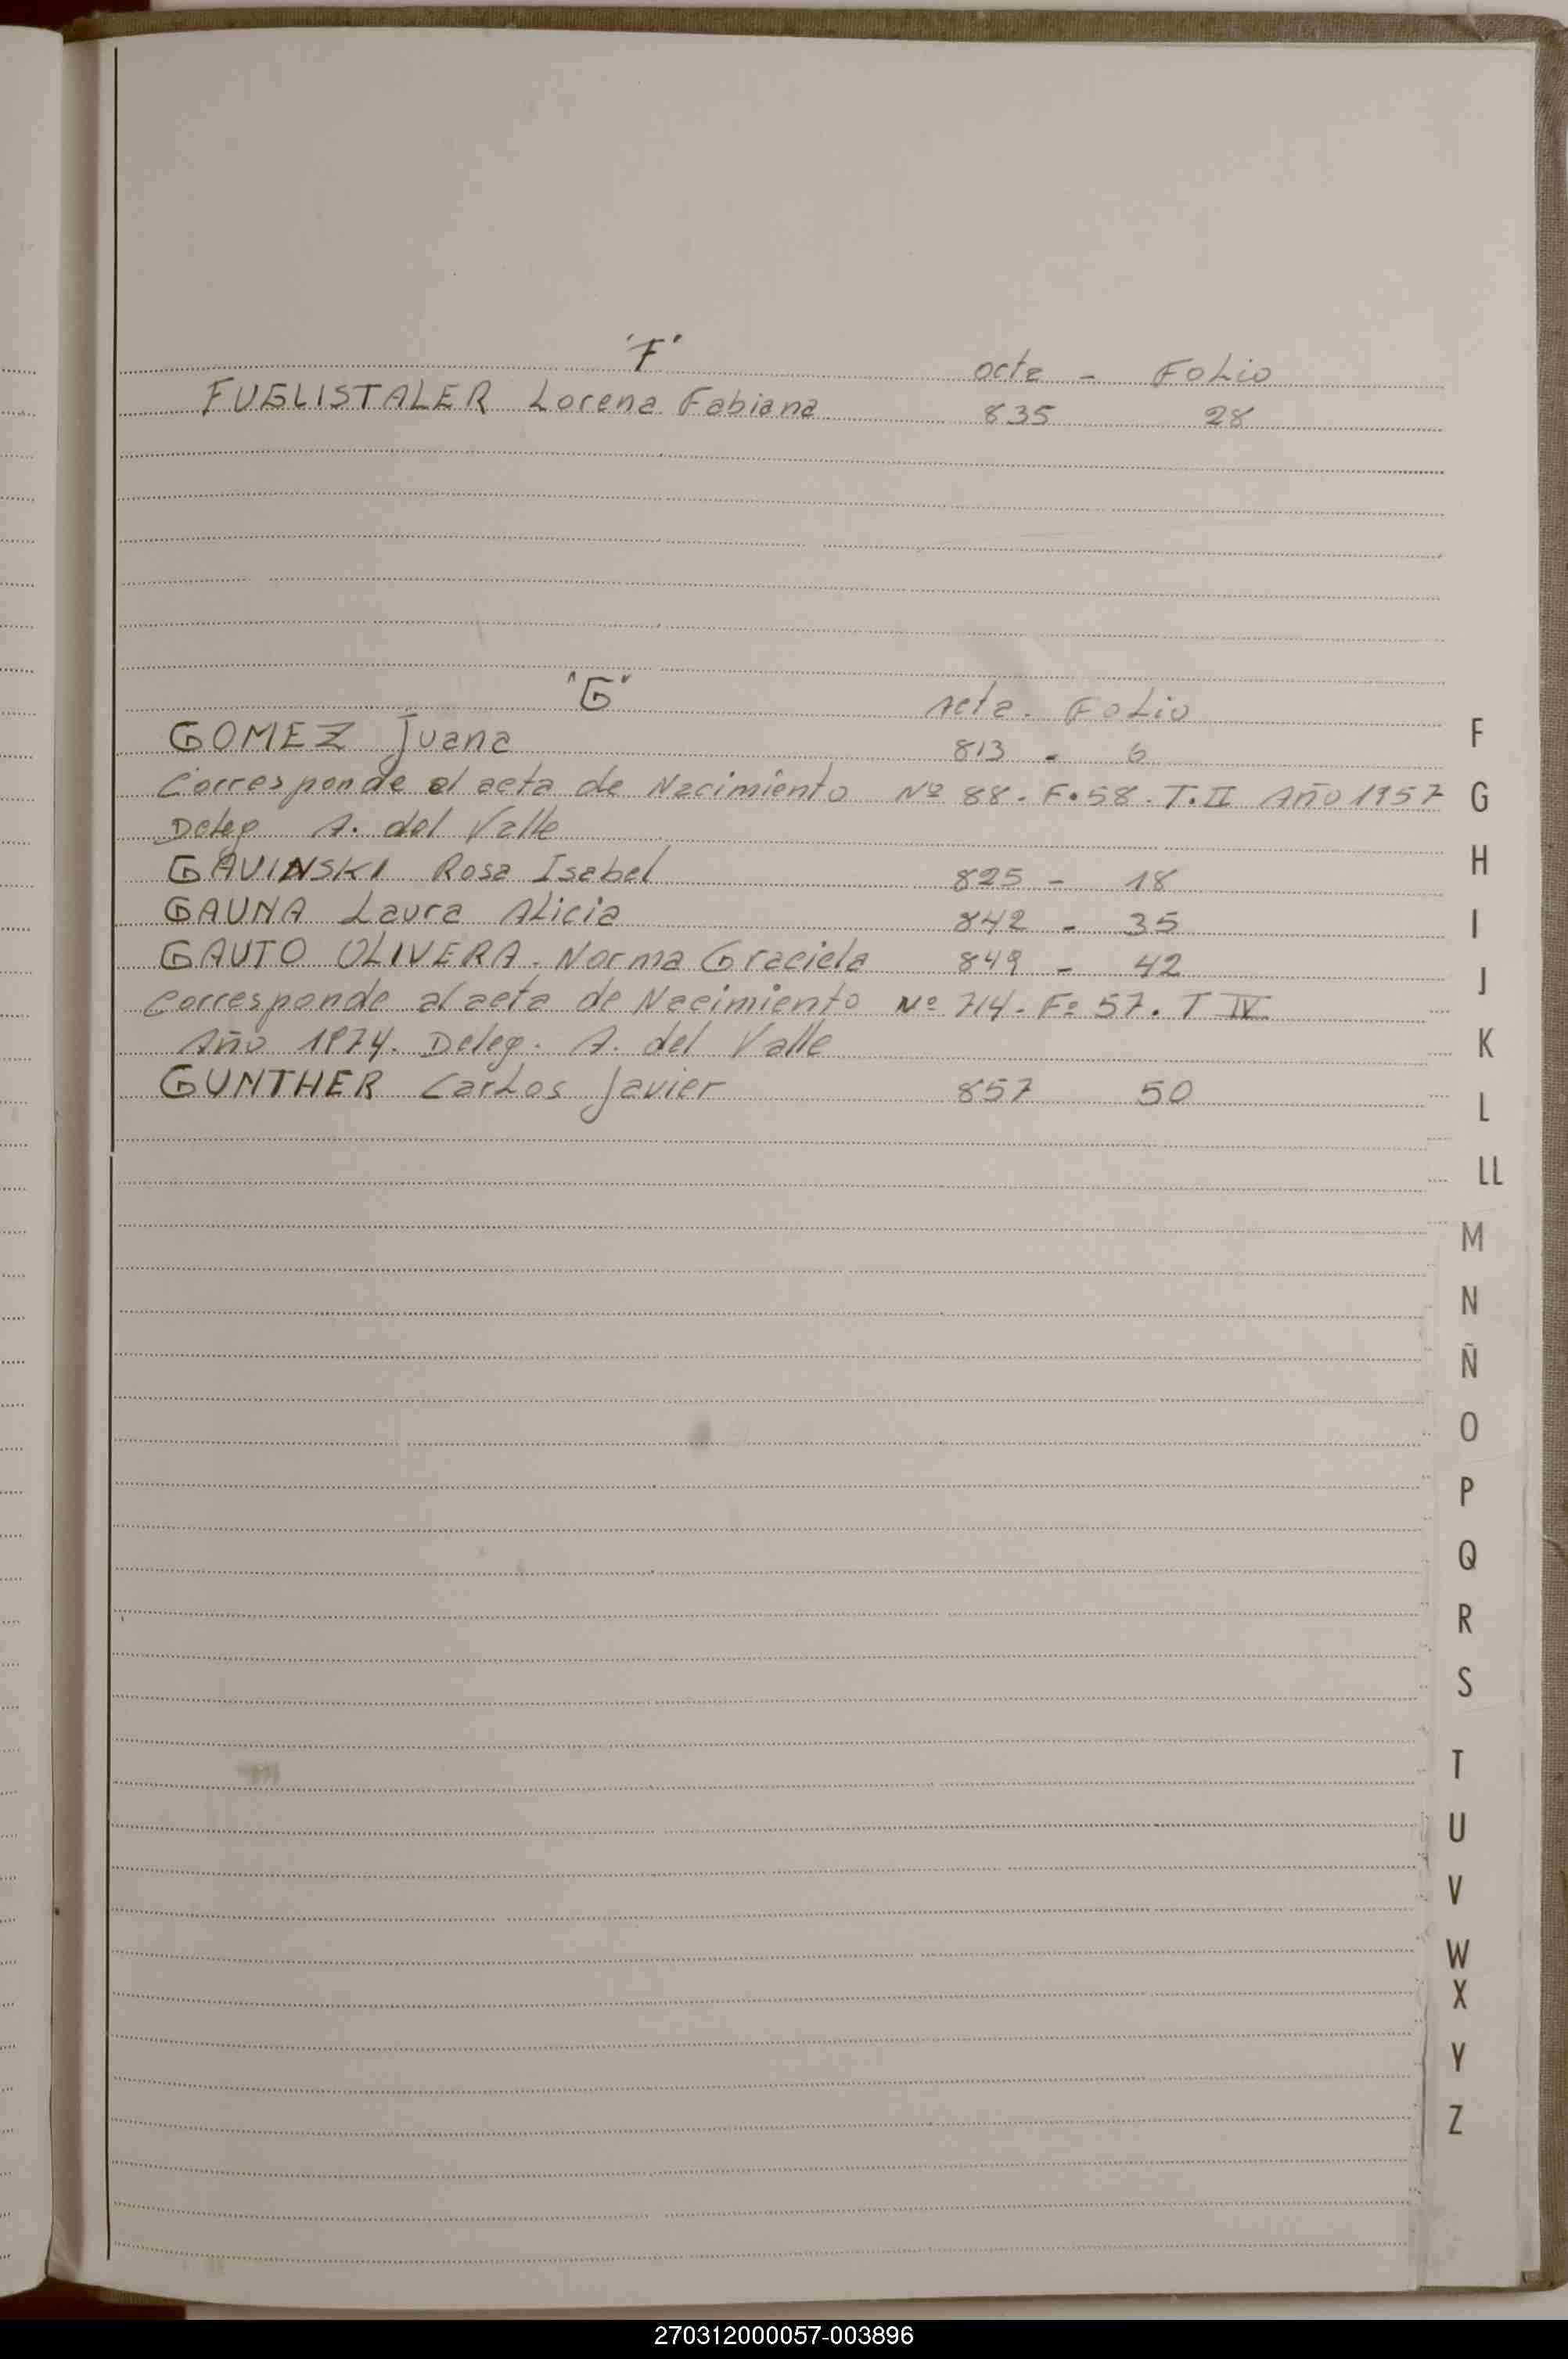 "F"
acta - Folio
FUGLISTALER Lorena Fabiana 835 28
"G"
Acta - Folio
GOMEZ Juana 813 - 6
Corresponde al acta de Nacimiento Nº 88 - F.58 - T.II Año 1957
Deleg A. del Valle
GAVINSKI Rosa Isabel 825 - 18
GAUNA Laura Alicia 842 - 35
GAUTO OLIVERA - Norma Graciela 849 - 42
Corresponde al acta de Nacimiento Nº 714 - Fº 57. T IV
Año 1974. Deleg. A. del Valle
GUNTHER Carlos Javier 857 50
F
G
H
I
J
K
L
LL
M
N
Ñ
O
P
Q
R
S
T
U
V
W
X
Y
Z
270312000057-003896